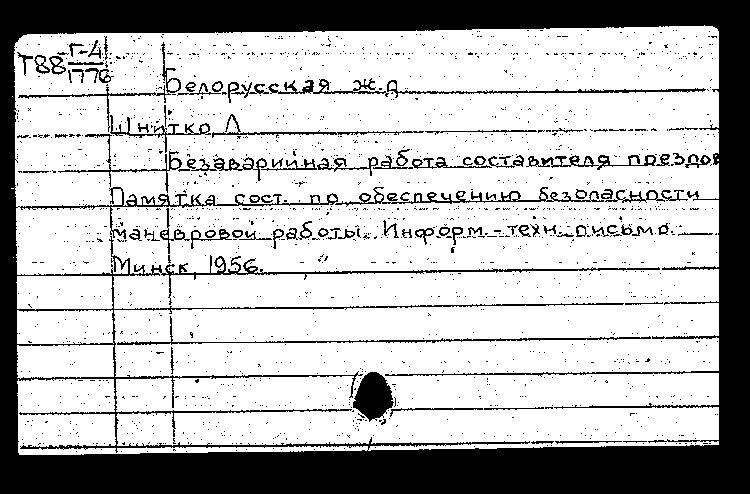 Т88 Г-4
1776
Белорусская ж.д.
Шнитко, Л
Безаварийная работа составителя поездов
Памятка сост. по обеспечению безопасности
маневровой работы. Информ.-техн. письмо.
Минск, 1956.